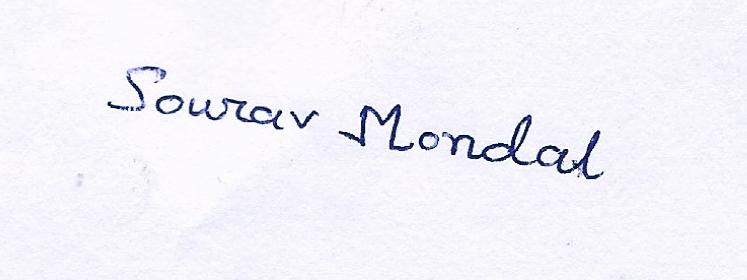 Sourav Mondal